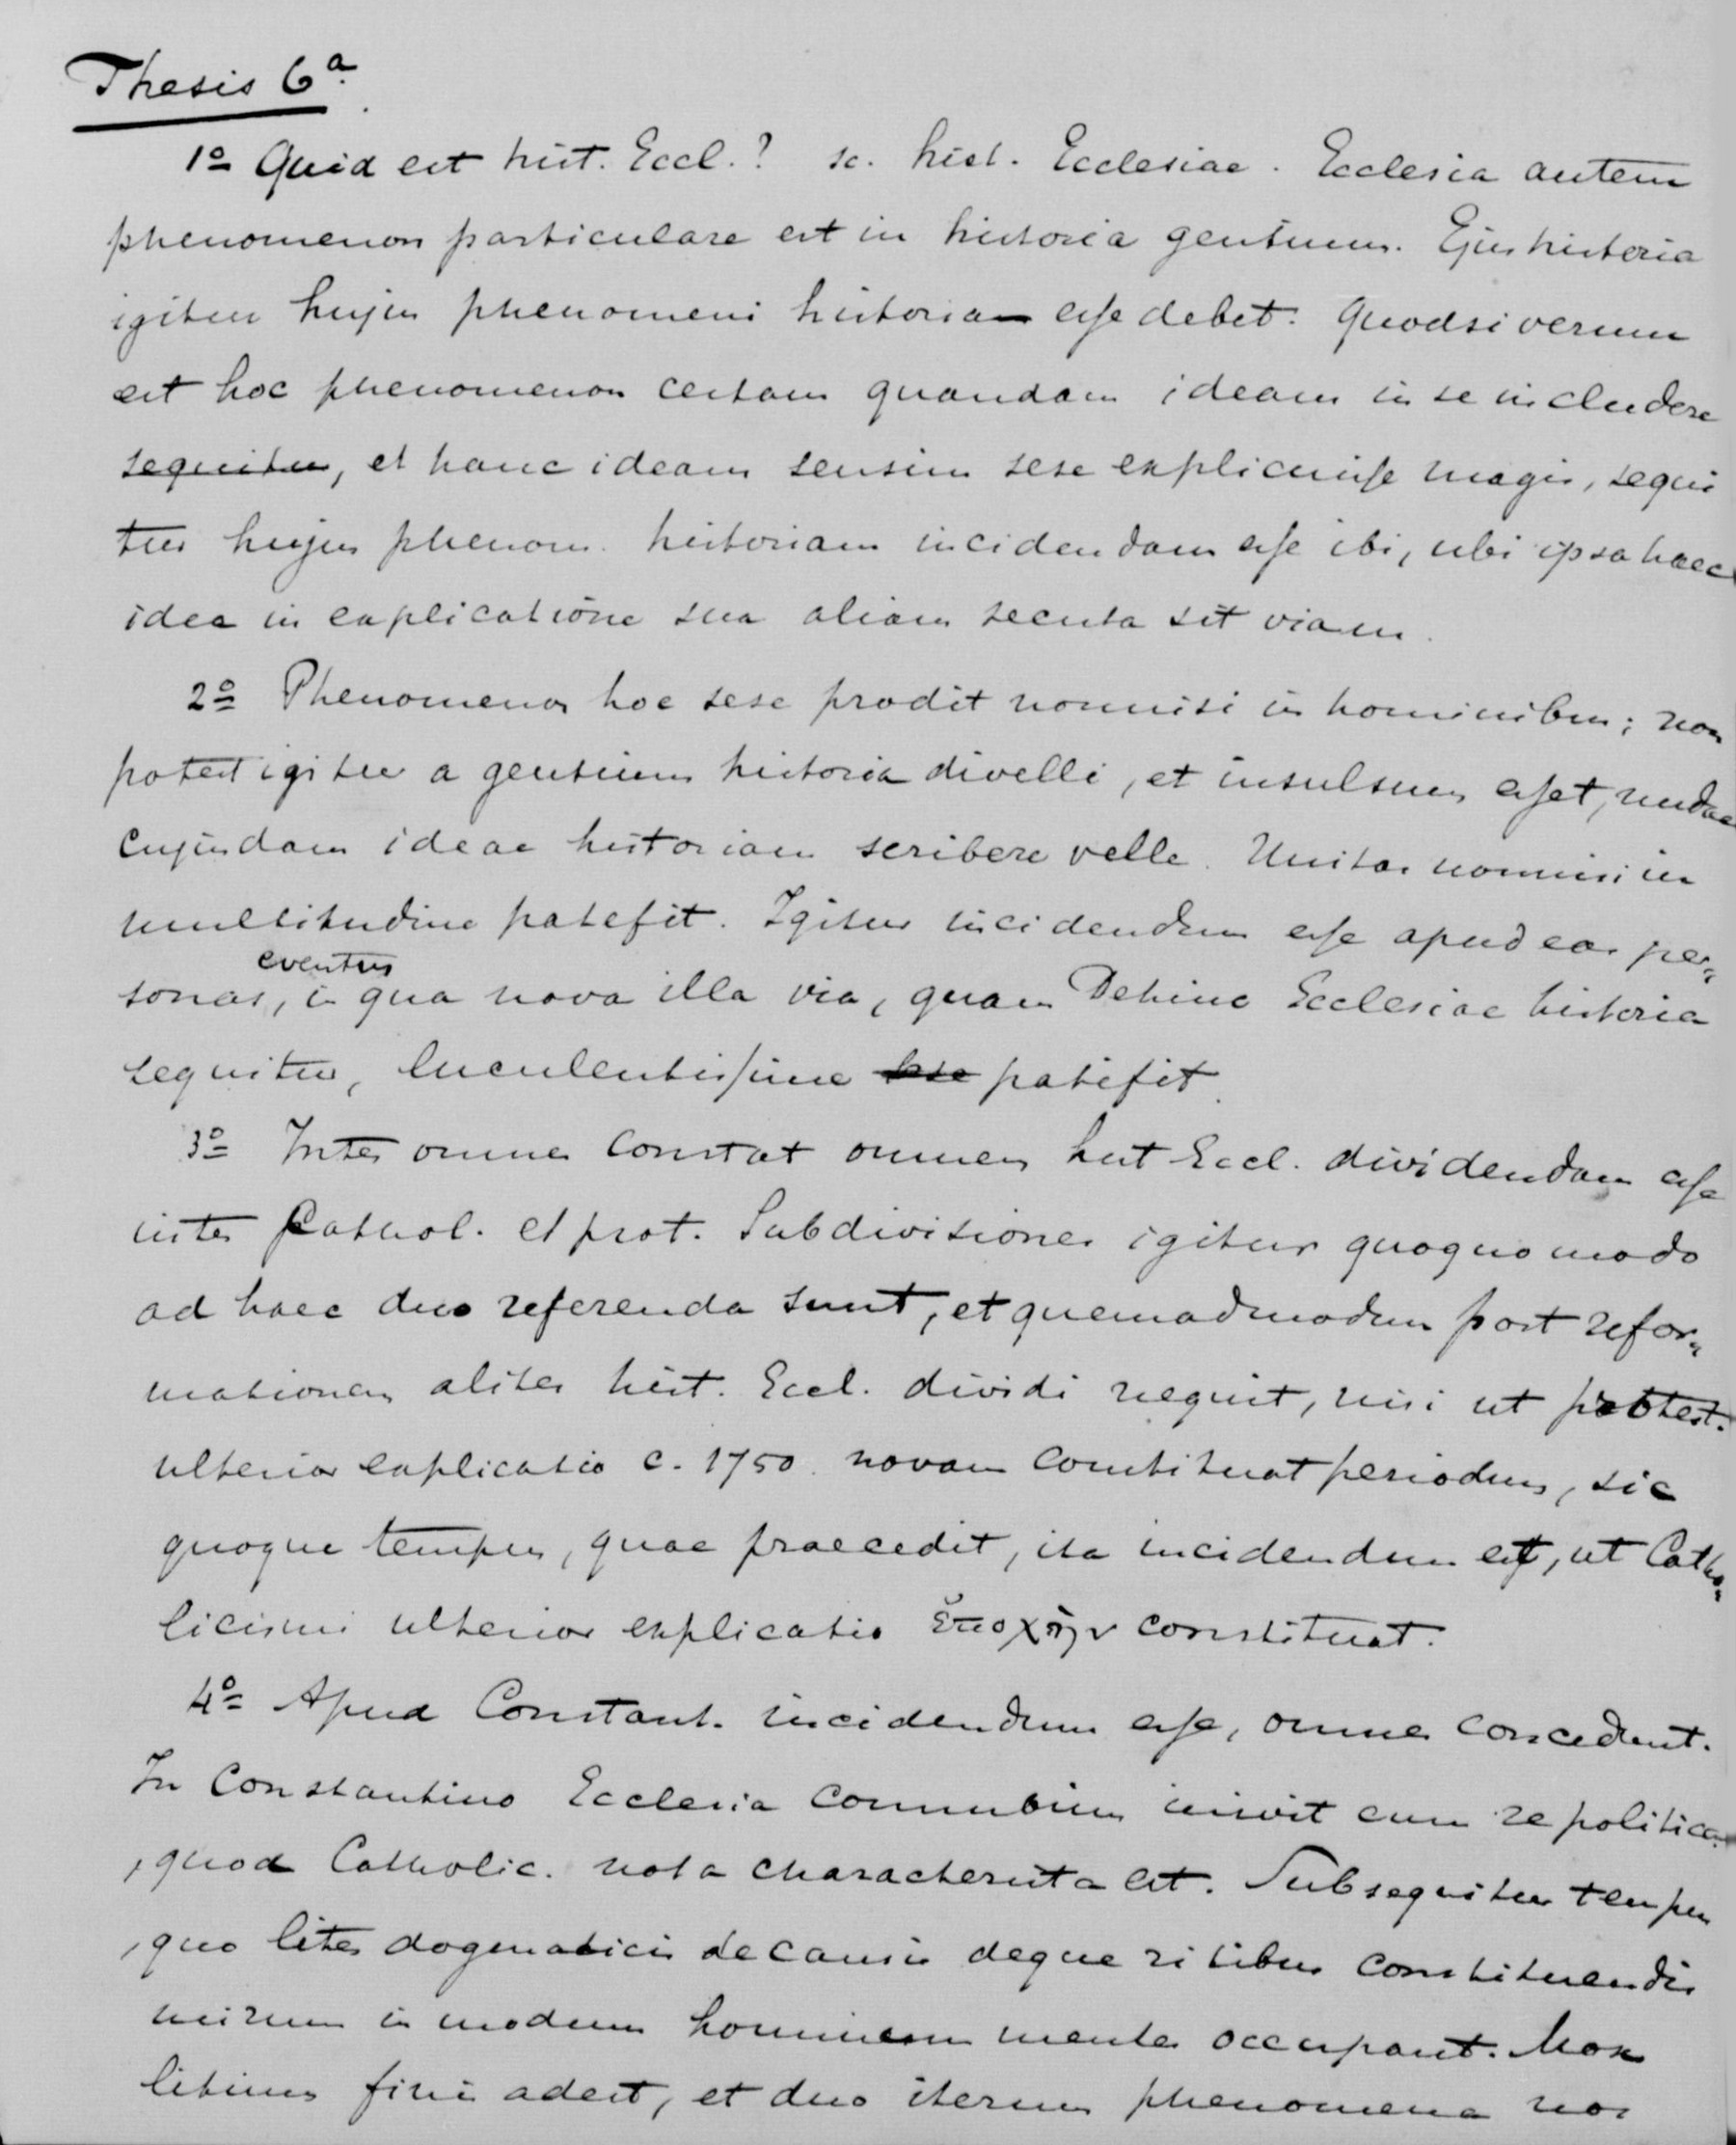 Thesis 6a.
1o Quid est hist. Eccl.? sc. hist. Ecclesiae. Ecclesia autem
phenomenon particulare est in historia gentium. Ejus historia
igitur hujus phenomeni historia esse debet. Quodsi verum
est hoc phenomenon certam quandam ideam in se includere
sequitur, et hanc ideam sensim sese explicuisse magis, sequi
tur hujus phenom. historiam incidendam esse ibi, ubi ipsa haec
idea in explicatione sua aliam secuta sit viam.
2o Phenomenon hoc sese prodit nonnisi in hominibus; non
potest igitur a gentium historia divelli, et insulsum esset, nudae
cujusdam ideae historiam scribere velle. Unitas nonnisi in
multitudine patefit. Igitur incidendum esse apud eas per„
eventus
sonas, in qua nova illa via, quam dehinc Ecclesiae historia
sequitur, luculentissime sese patefit.
3o Inter omnes constat omnem hist Eccl. dividendam esse
inter Cathol. et prot. Subdivisiones igitur quoquo modo
ad haec duo referenda sunt, et quemadmodum post refor„
mationem aliter hist. Eccl. dividi nequit, nisi ut protest.
ulterior explicatio c. 1750. novam constituat periodum, sic
quoque tempus, quae praecedit, ita incidendum est, ut Catho„
licismi ulterior explicatio ἐποχὴν constituat.
4o Apud Constant. incidendum esse, omnes concedunt.
In Constantino Ecclesia connubium inivit cum re politica
, quod Catholic. nota characterista est. Subsequitur tempus
, quo lites dogmaticis de causis deque ritibus constituendis
mirum in modum hominum mentes occupant. Mox
litium finis adest, et duo iterum phenomena nos